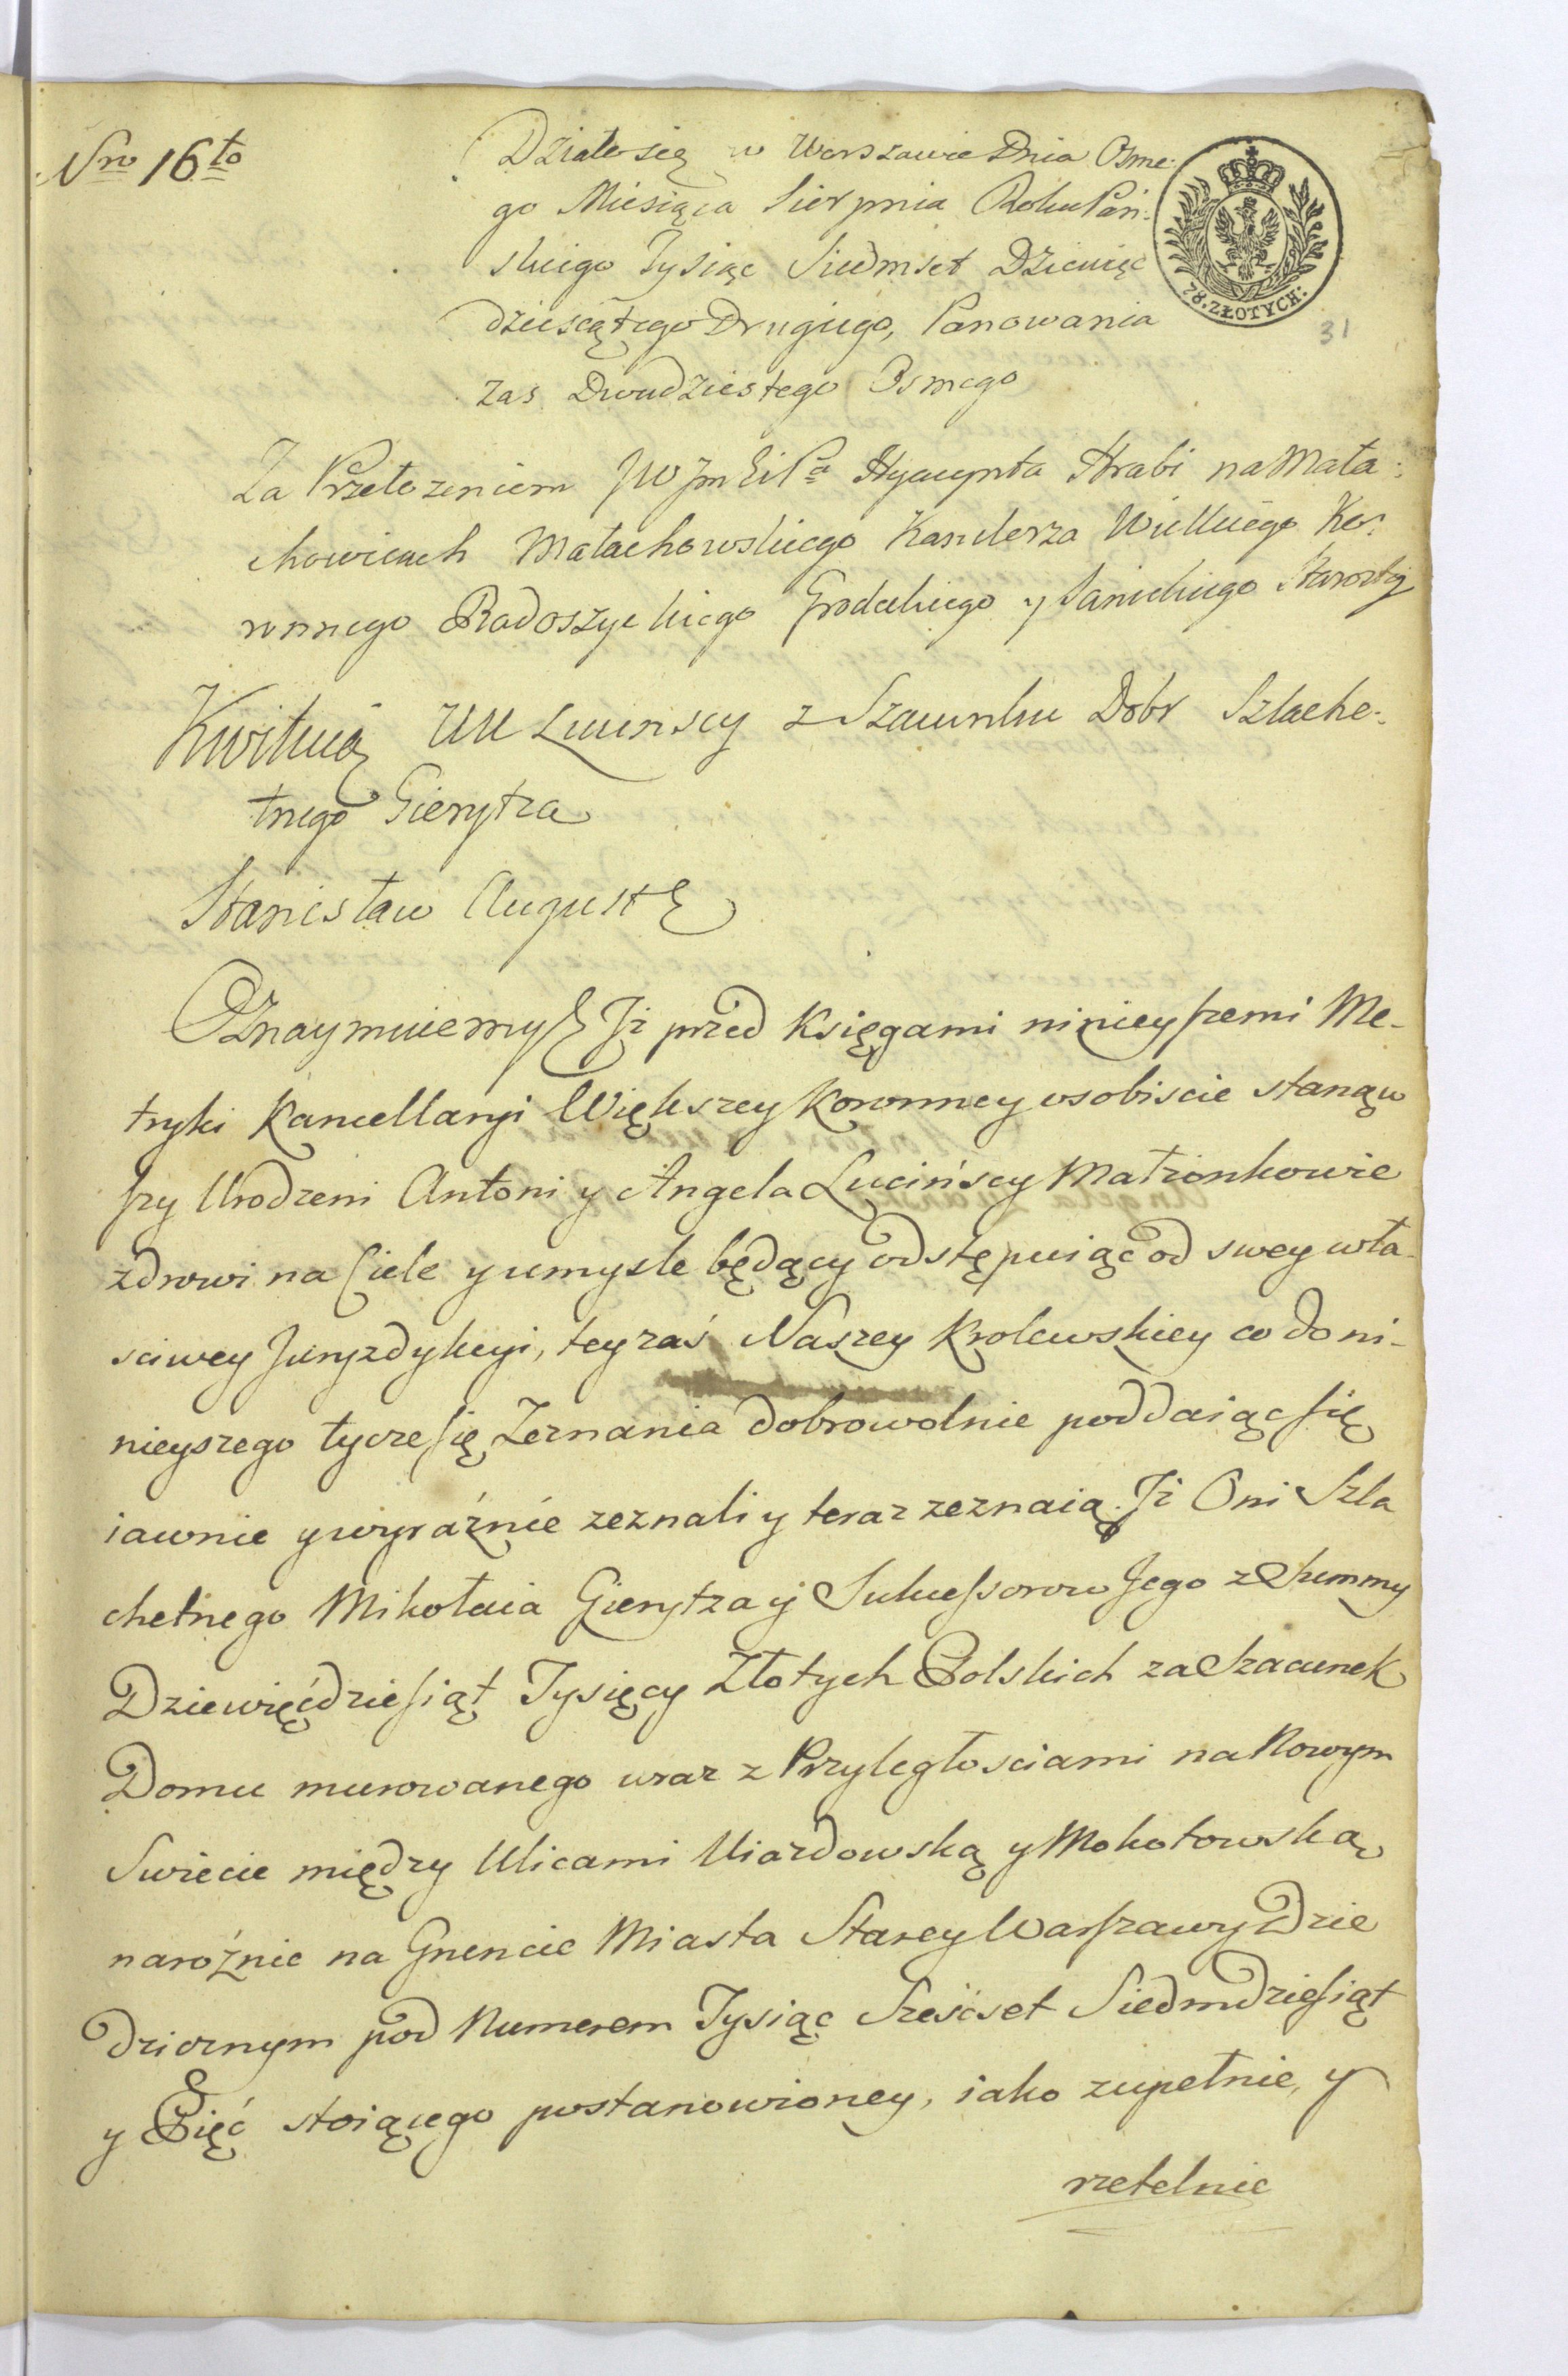 Nro 16to
Działo się w Warszawie Dnia Osme-
go Miesiąca Sierpnia Roku Pań-
skiego Tysiąc Siedmset Dziewięć
dziesiątego Drugiego, Panowania
zas Dwudziestego Osmego
78. ZŁOTYCH:
31
Za Przełozeniem JW Jm Pa Hyacynta Hrabi na Mała-
chowicach Małachowskiego Kanclerza Wielkiego Ko-
ronnego Radoszyckiego Grodeckiego y Sanickiego Starosty
Kwituią UU Lucinscy z Szacunku Dobr Szlache-
tnego Gierytza
Stanisław August
Oznaymuiemy Iż przed Księgami ninieyszemi Me-
tryki Kancellaryi Większey Koronney osobiscie stanąw
szy Urodzeni Antoni y Angela Lucińscy Małżonkowie
zdrowi na Ciele y umysle będący odstępuiąc od swey wła-
sciwey Juryzdykcyi, tey zaś Naszey Krolewskiey co do ni-
nieyszego tycze się Zeznania dobrowolnie poddaiąc się
iawnie y wyraźnie zeznali y teraz zeznaią. Iż Oni Szla
chetnego Mikołaia Gierytza y Sukcessorow Jego z Summy
Dziewięćdziesiąt Tysięcy Złotych Polskich za Szacunek
Domu murowanego wraz z Przyległosciami na Nowym
Swiecie między Ulicami Uiazdowską y Mokotowską
narożnie na Gruncie Miasta Starey Warszawy Dzie
dzicznym pod Numerem Tysiąc Sześcset Siedmdziesiąt
y Pięć stoiącego postanowioney, iako zupełnie, y
rzetelnie